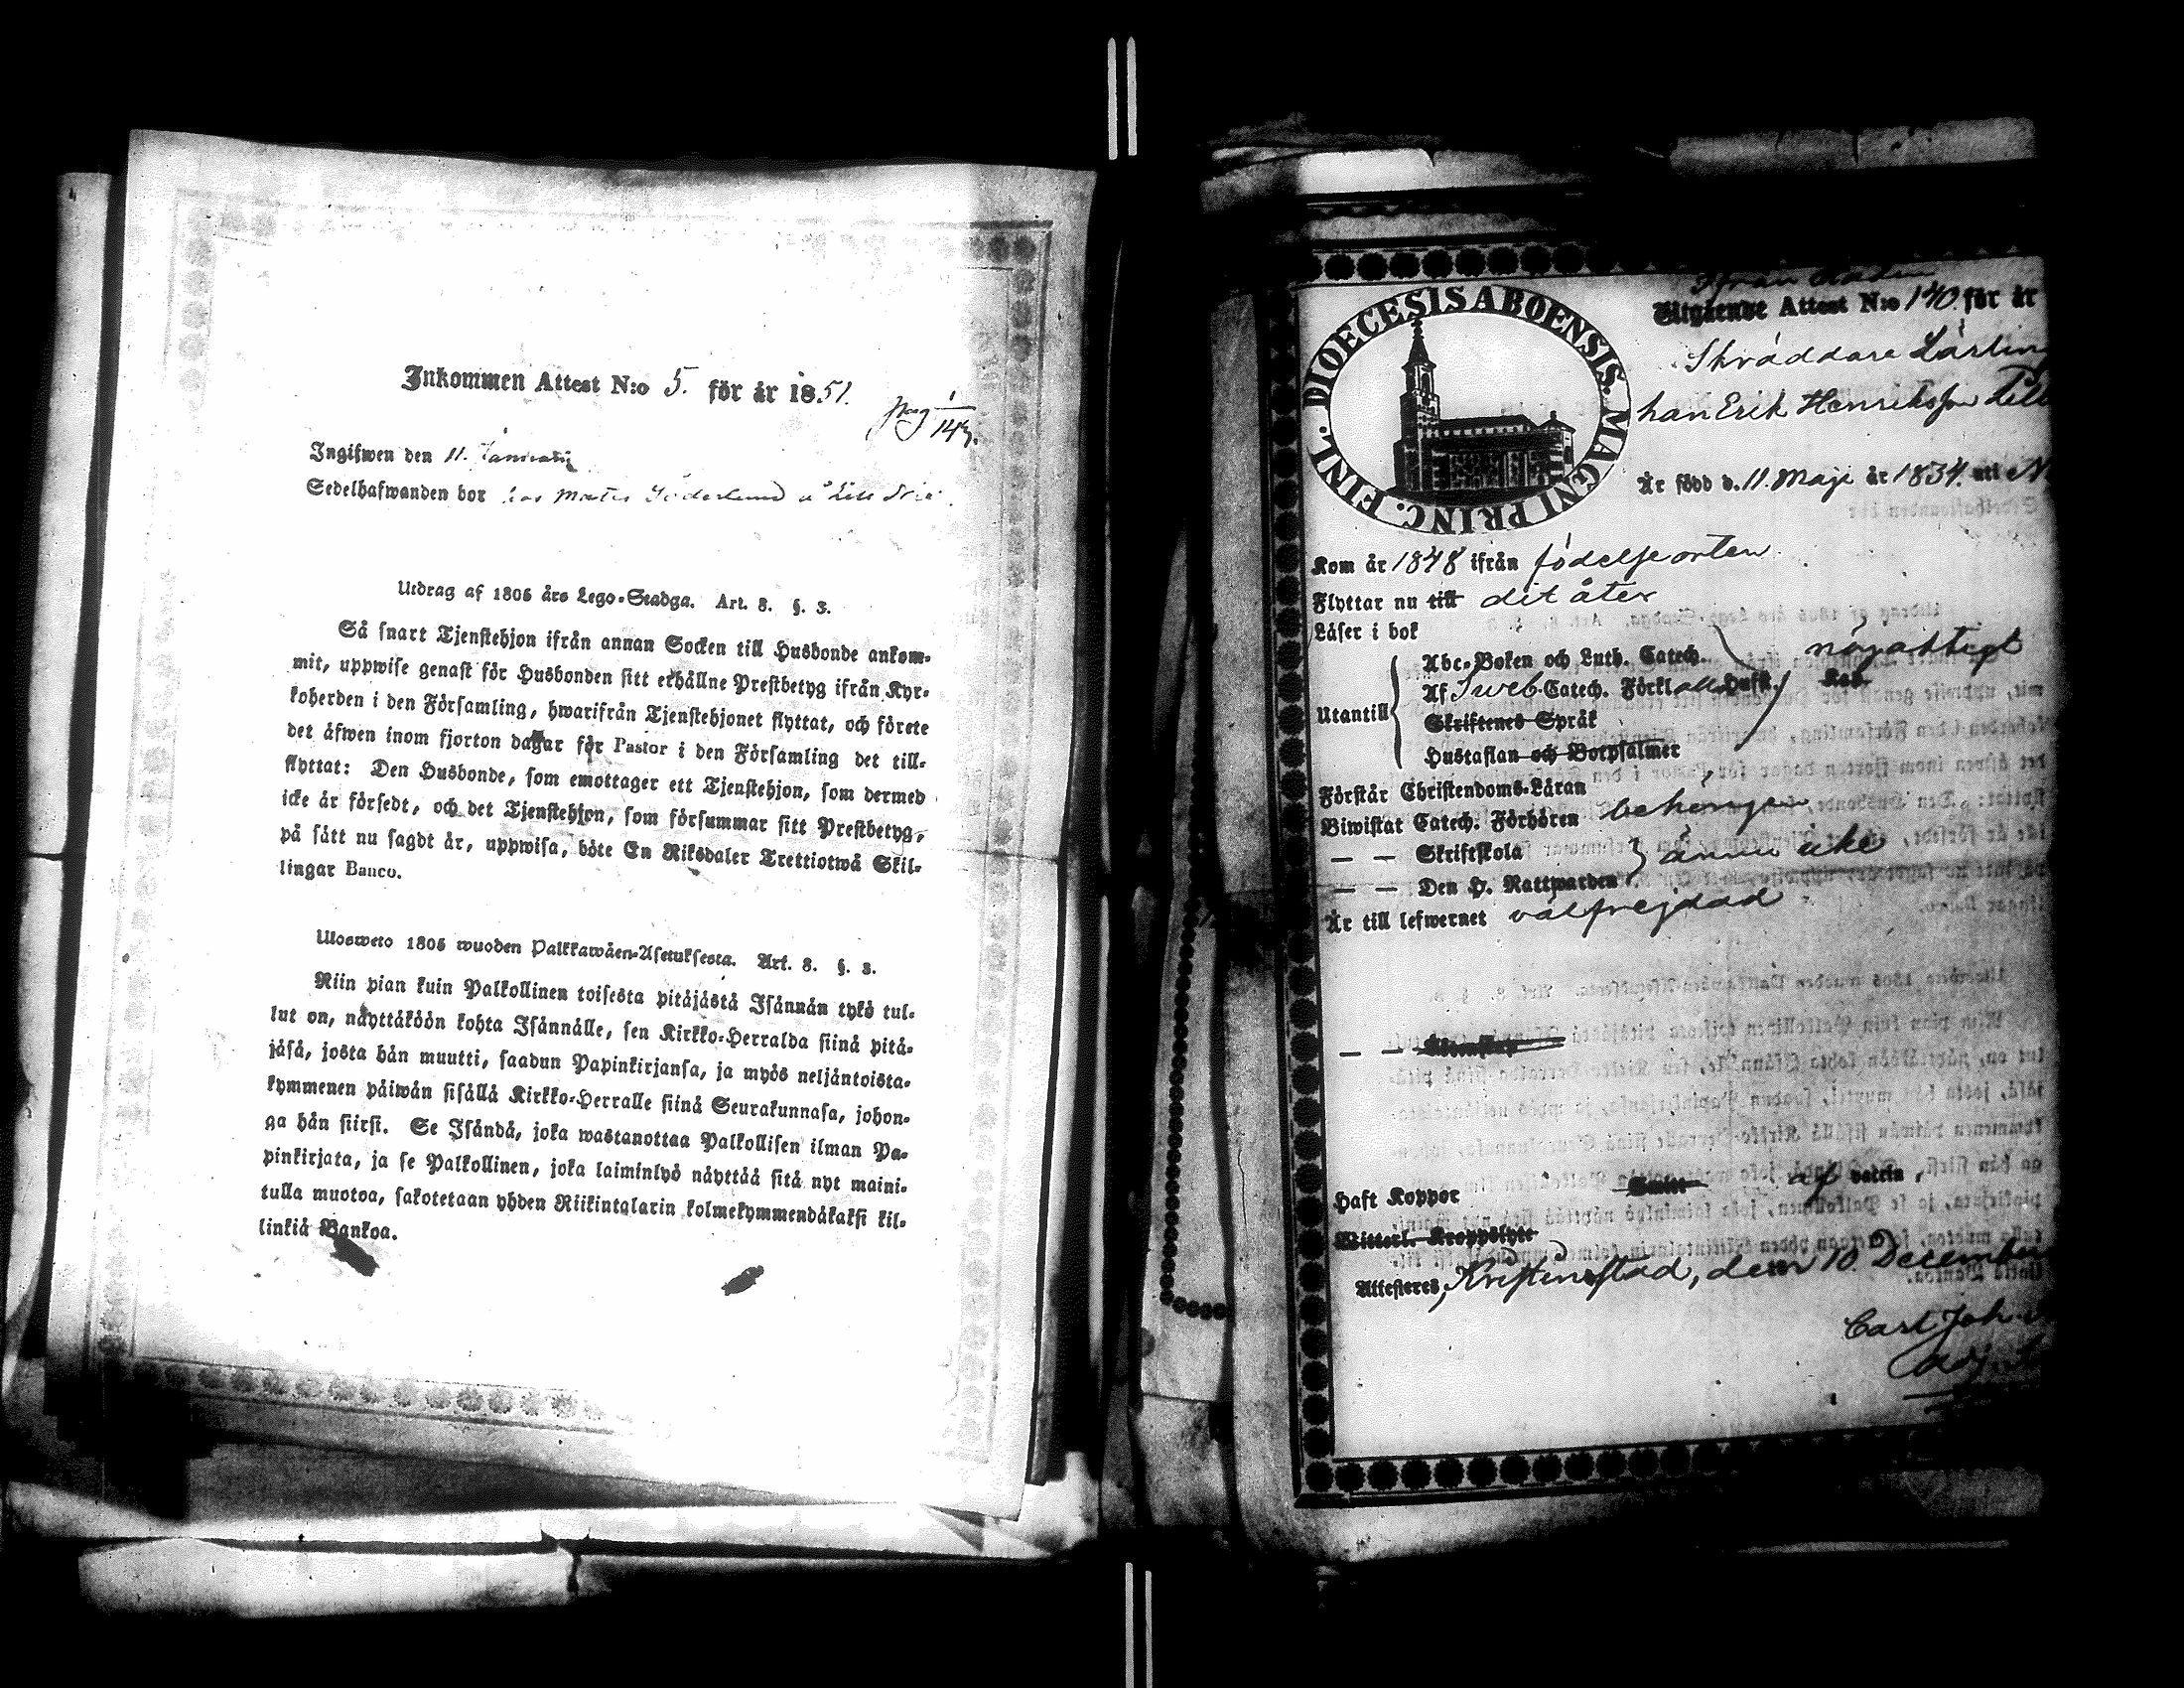 Inkommen Attest N:o 5. för år 1851.
pag 1/143.
Ingifwen den 11. Januarii
Sedelhafwanden bor hos Matts Söderlund å Lill
Utdrag af 1805 års Lego-Stadga. Art. 8. §. 3.
Så snart Tjenstehjon ifrån annan Socken till Husbonde ankom-
mit, uppwise genast för Husbonden sitt erhållne Prestbetyg ifrån Kyr-
koherden i den Församling, hwarifrån Tjenstehjonet flyttat, och förete
det äfwen inom fjorton dagar för Pastor i den Församling det till-
flyttat: Den Husbonde, som emottager ett Tjenstehjon, som dermed
icke är försedt, och det Tjenstehjon, som försummar sitt Prestbetyg,
på sätt nu sagdt är, uppwisa, böte En Riksdaler Trettiotwå Skil-
lingar Banco.
Ulosweto 1805 wuoden Palkkawäen-Asetuksesta. Art. 8. §. 3.
Niin pian kuin Palkollinen toisesta pitäjästä Isännän tykö tul-
lut on, näyttäköön kohta Isännälle, sen Kirkko-Herralda siinä pitä-
jäsä, josta hän muutti, saadun Papinkirjansa, ja myös neljäntoista-
kymmenen päiwän sisällä Kirkko-Herralle siinä Seurakunnasa, johon-
ga hän siirsi. Se Isändä, joka wastanottaa Palkollisen ilman Pa-
pinkirjata, ja se Palkollinen, joka laiminlyö näyttää sitä nyt maini-
tulla muotoa, sakotetaan yhden Riikintalarin kolmekymmendäkaksi kil-
linkiä Bankoa.
DIOECESIS ABOENSIS. MAGNI PRINC. FINL.
Ifrån
Utgående Attest N:o 140. för år
Skräddare Lärling
han Erik Henriksson Lill
Är född d. 11. Maji år 1834. uti N
Kom år 1848 ifrån födelseorten
Flyttar nu till dit åter
Läser i bok
Abc-Boken och Luth. Catech. nöjaktigt
Af Sveb. Catech. Förkl. Husf. Kap.
Utantill
Skriftenes Språk
Hustaflan och Botpsalmer
Förstår Christendoms-Läran
Biwistat Catech. Förhören behörigen
— — Skriftskola
ännu icke
— — Den H. Nattwarden
Är till lefwernet välfrejdad
— —
Haft Koppor af vaccin,
Witterl. Kroppslyte
Attesteres, Kristinestad, den 10 December
Carl Joh
Adj